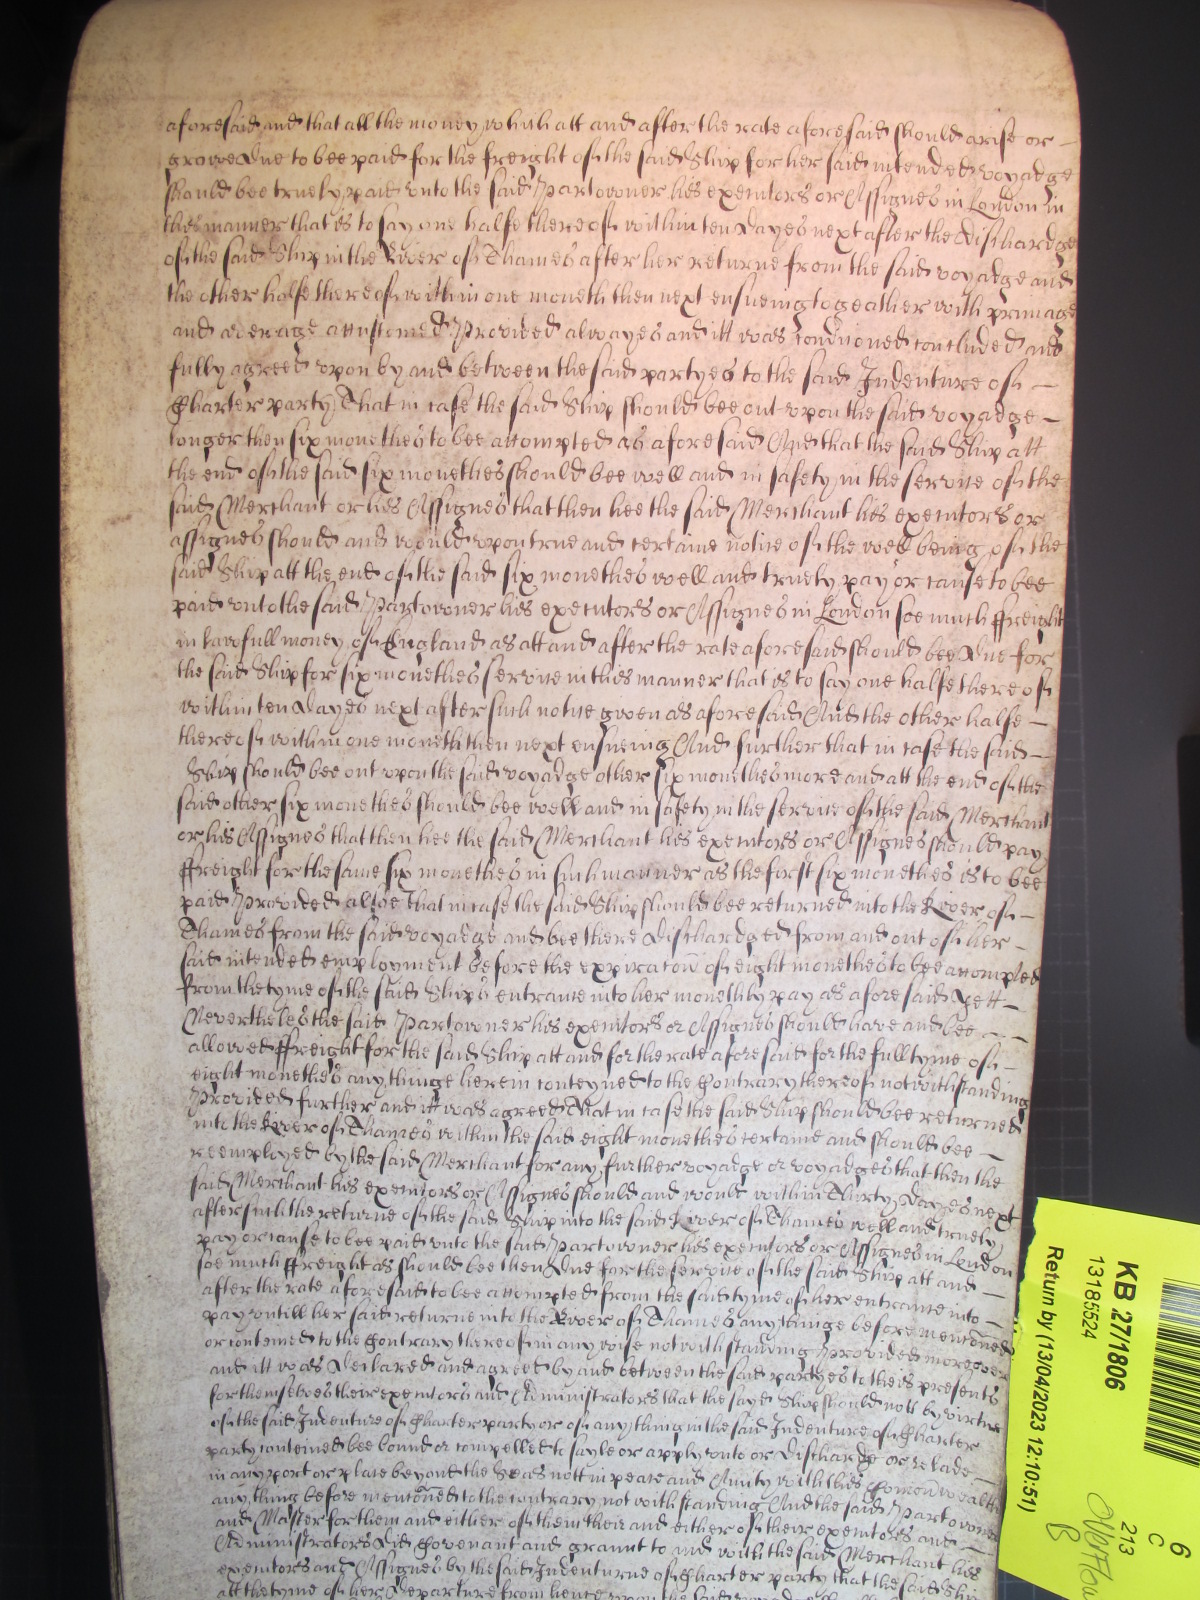 aforesaid and that all the money which att and after the rate aforesaid should arise or
growe due to bee paid for the freight of the said Shipp for her said intended voyadge
should bee truely paid unto the said Partowner his executors or Assignes in London in
this manner that is to say one halfe thereof within ten dayes next after the dischardge
of the said Shipp in the River of Thames after her returne from the said voyadge and
the other halfe thereof within one moneth then next ensueing togeather with primage
and average accustomed Provided alwayes and itt was condicioned concluded and
fully agreed upon by and betweene the said partyes to the said Indenture of
Charter party That in case the said Shipp should bee out upon the said voyadge
longer then six monethes to bee accompted as aforesaid And that the said Shipp att
the end of the said six monethes should bee well and in safety in the service of the
said Merchant or his Assignes that then hee the said Merchant his executors or
assignes should and would upon true and certaine notice of the well being of the
said Shipp att the end of the said six monethes well and truely pay or cause to bee
paid unto the said Partowner his executors or Assignes in London soe much ffreight
in lawfull money of England as att and after the rate aforesaid should bee due for
the said Shipp for six monethes service in this manner that is to say one halfe thereof
within ten dayes next after such notice given as aforesaid And the other halfe
thereof within one moneth then next ensueing And further that in case the said
Shipp should bee out upon the said voyadge other six monethes more and att the end of the
said other six monethes should bee well and in safety in the service of the said Merchant
or his Assignes that then hee the said Merchant his executors or Assignes should pay
ffreight for the same six monethes in such manner as the first six monethes is to bee
paid Provided alsoe that in case the said Shipp should bee returned into the River of
Thames from the said voyadge and bee there dischardged from and out of her
said intended employment before the expiracion of eight monethes to bee accompted
from the tyme of the said Shipps entrance into her monethly pay as aforesaid yett
Neverthelesthe said Partowner his executors or Assignes should have and bee
allowed ffreight for the said Shipp att and for the rate aforesaid for the full tyme of
eight monethes any thinge herein conteyned to the Contrary thereof notwithstanding
Provided further and itt was agreed That in case the said Shipp should bee returned
into the River of Thames within the said eight monethes certaine and should bee
reemployed by the said Merchant for any further voyadge or voyadges that then the
said Merchant his executors or Assignes should and would within Thirty dayes next
after such the returne of the said Shipp into the said River of Thames well and truely
pay or cause to bee paid unto the said Partowner his executors or Assignes in London
soe much ffreight as should bee then due for the service of the said Shipp att and
after the rate aforesaid to bee accompted from the said tyme of her entrance into
pay untill her said returne into the River of Thames any thinge before mencioned
or conteined to the Contrary thereof in any wise notwithstanding Provided moreover
and itt was declared and agreed by and betweene the said partyes to theis presents
for themselves their executors and Administrators that the sayd Shipp should nott by virtue
of the said Indenture of Charter party or of any thing in the said Indenture of Charter
party conteined bee bound or compelled to sayle or apply unto or discharge or relade
in any port or place beyond the Seas nott in peace and Amity with this Comonwealth
any thing before mencioned to the contrary notwithstanding And the said Partowner
and Master for them and either of them their and either of their executors and
Administrators did Covenant and graunt to and with the said Merchant his
executors and Assignes by the said Indenture of Charter party that the said Shipp
att the tyme of her departure from hence upon the said voyadge
KB 271806
13185524
Return by (13/04/2023 12:10:51)
6
C
213
Overflow
B